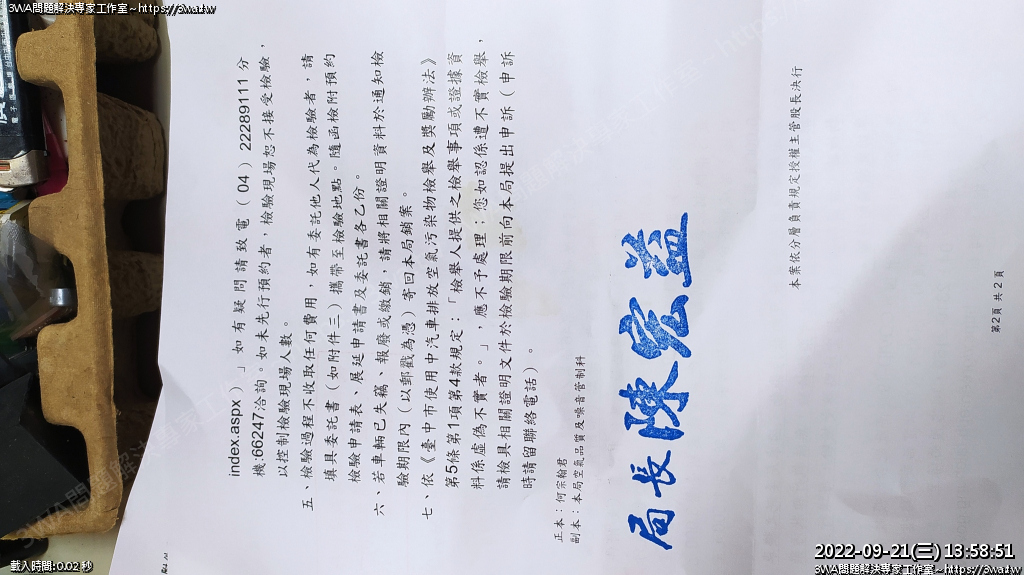 3WA問題解決專家工作室~https://3wa.tw
index.aspx ）。」如有疑問請致電（04）22289111 分
機:66247洽詢。如未先行預約者，檢驗現場恕不接受檢驗，
以控制檢驗現場人數。
五、檢驗過程不收取任何費用，如有委託他人代為檢驗者，請
填具委託書（如附件三）攜帶至檢驗地點。隨函檢附預約
檢驗申請表、展延申請書及委託書各乙份。
六、若車輛已失竊、報廢或繳銷，請將相關證明資料於通知檢
驗期限內（以郵戳為憑）寄回本局銷案。
七、依《臺中市使用中汽車排放空氣污染物檢舉及獎勵辦法》
第5條第1項第4款規定：「檢舉人提供之檢舉事項或證據資
料係虛偽不實者。」，應不予處理；您如認係遭不實檢舉，
請檢具相關證明文件於檢驗期限前向本局提出申訴（申訴
時請留聯絡電話）。
正本：何宗翰君
副本：本局空氣品質及噪音管制科
局長陳宏益
本案依分層負責規定授權主管股長決行
第2頁 共2頁
載入時間:0.02 秒
2022-09-21(三) 13:58:51
3WA問題解決專家工作室~https://3wa.tw